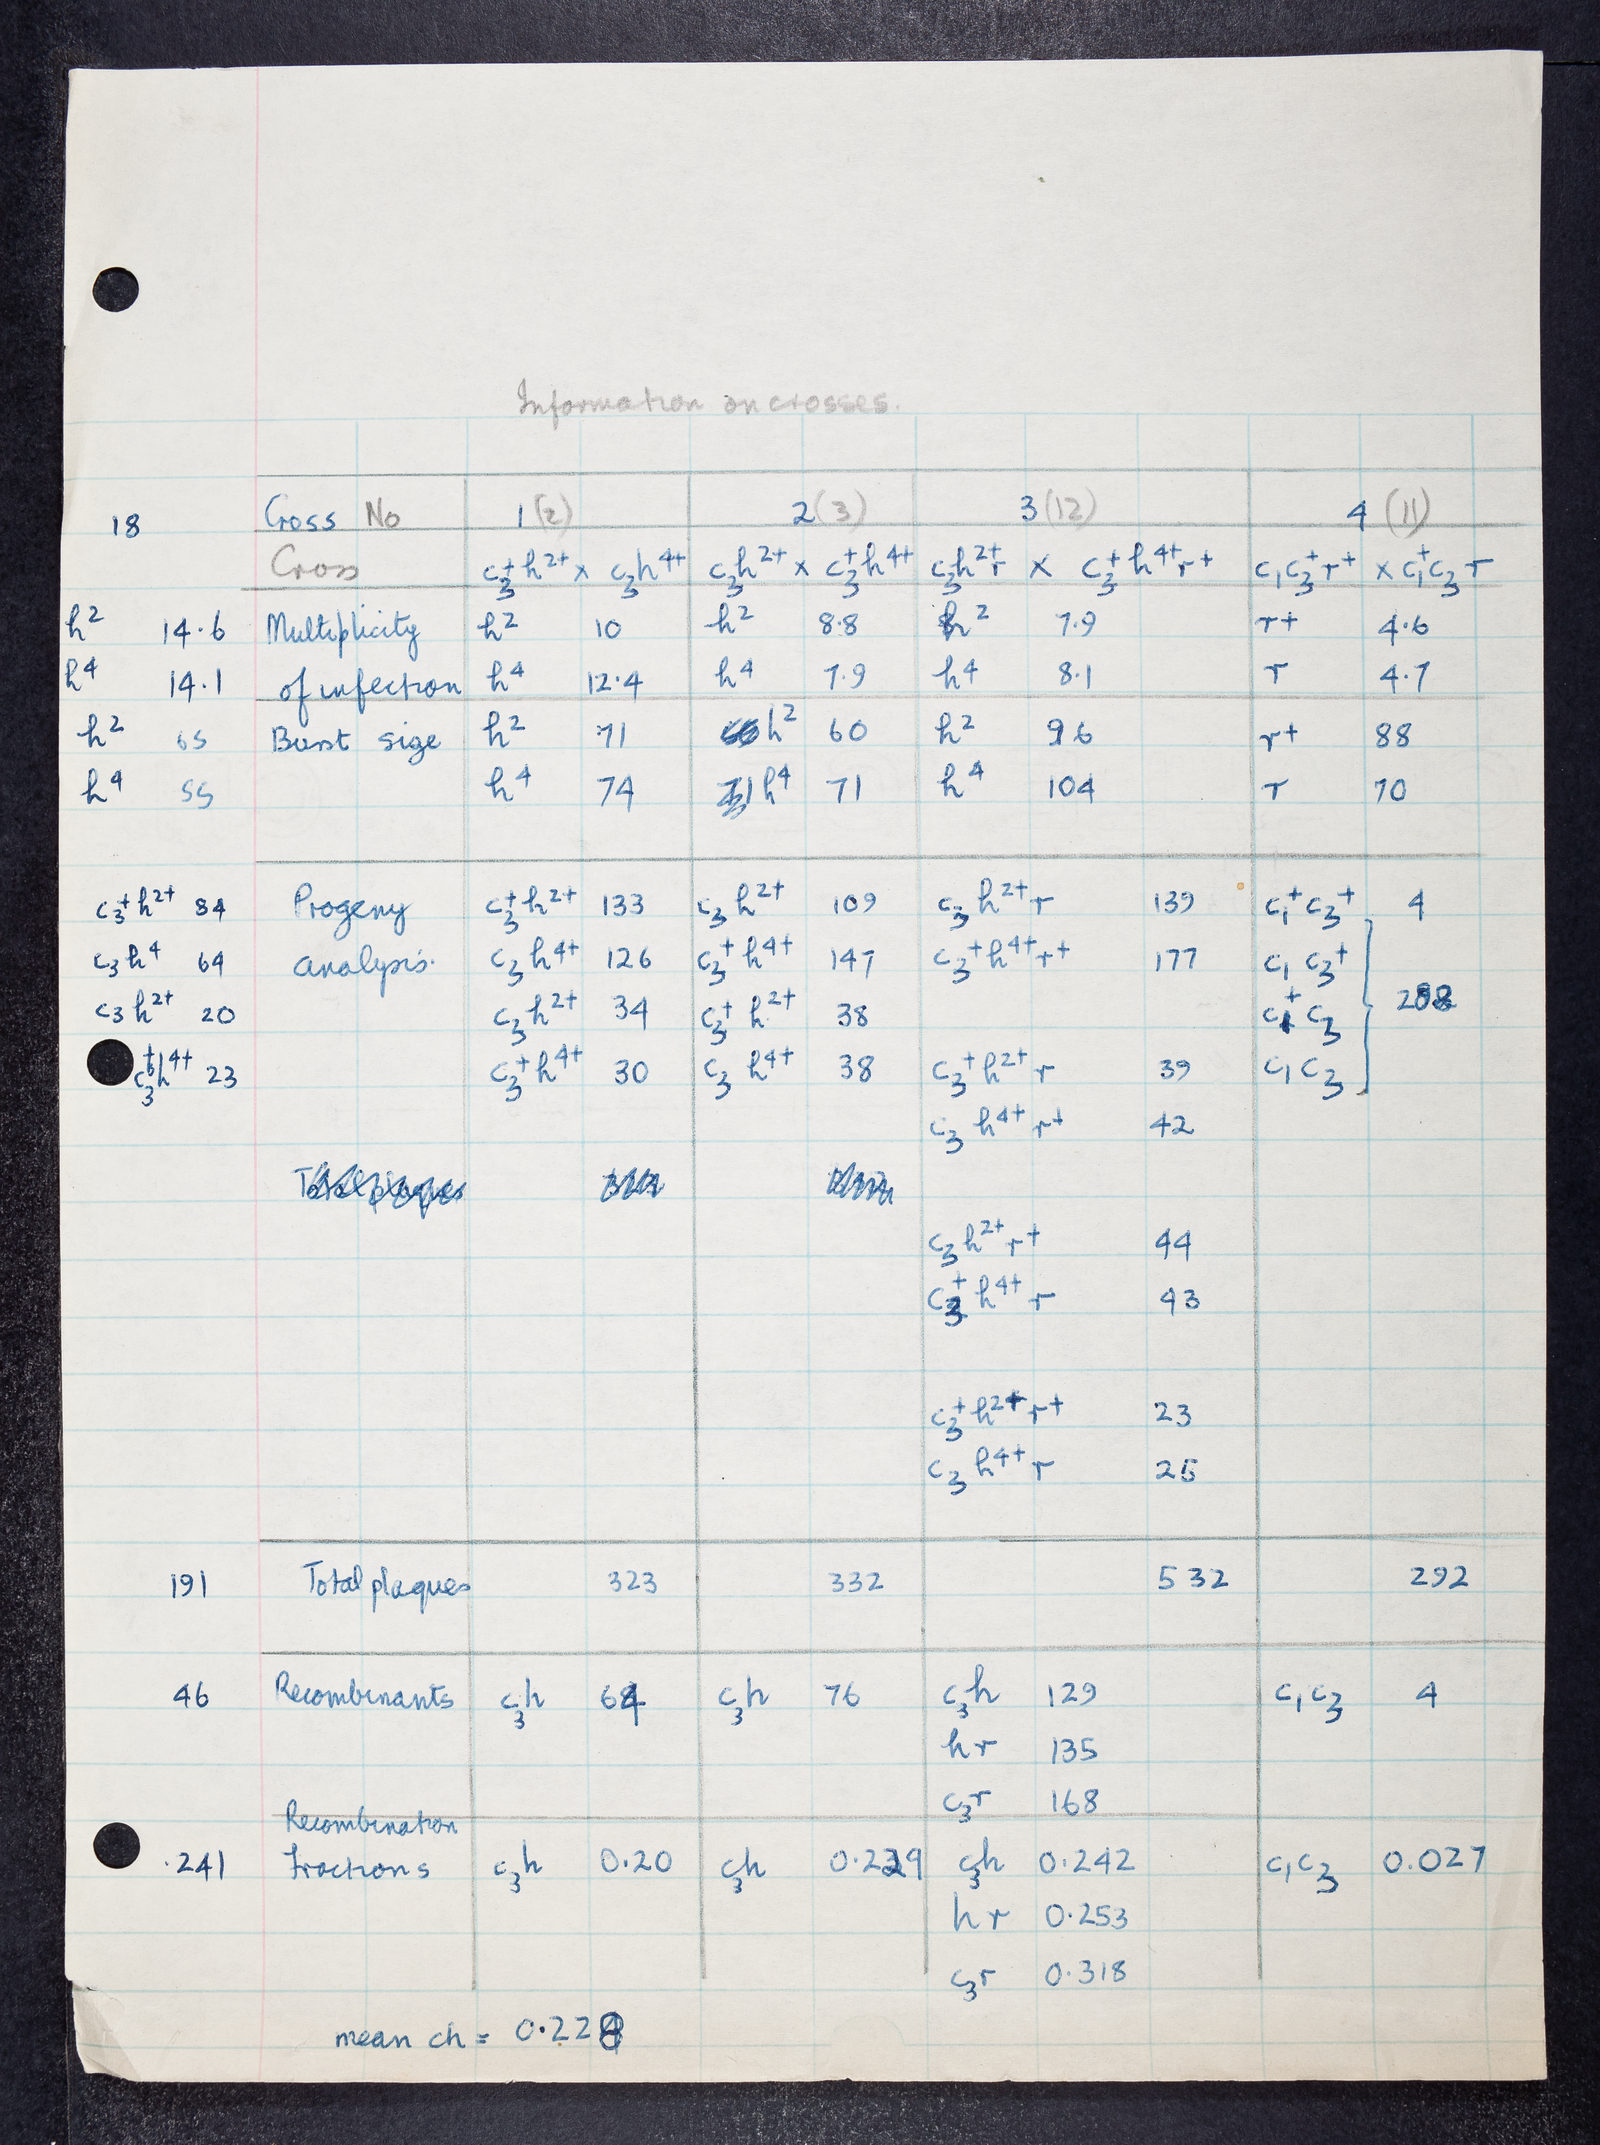 Information on crosses.
18 Cross No 1 (2) 2 (3) 3 (12) 4 (11)
Cross c₃⁺h²⁺ x c₃h⁴⁺ c₃h²⁺ x c₃⁺h⁴⁺ c₃h²⁺r x c₃⁺h⁴⁺r⁺ c₁c₃⁺r⁺ x c₁⁺c₃r
h² 14.6 Multiplicity h² 10 h² 8.8 h² 7.9 r⁺ 4.6
h⁴ 14.1 of infection h⁴ 12.4 h⁴ 7.9 h⁴ 8.1 r 4.7
h² 65 Burst size h² 71 h² 60 h² 96 r⁺ 88
h⁴ 55 h⁴ 74 h⁴ 71 h⁴ 104 r 70
c₃⁺h²⁺ 84 Progeny c₃⁺h²⁺ 133 c₃h²⁺ 109 c₃h²⁺r 139 c₁⁺c₃⁺ 4
c₃h⁴ 64 analysis. c₃h⁴⁺ 126 c₃⁺h⁴⁺ 147 c₃⁺h⁴⁺r⁺ 177 c₁c₃⁺
c₃h²⁺ 20 c₃h²⁺ 34 c₃⁺h²⁺ 38 c₁⁺c₃ 288
c₃⁺h⁴⁺ 23 c₃⁺h⁴⁺ 30 c₃h⁴⁺ 38 c₃⁺h²⁺r 39 c₁c₃
c₃h⁴⁺r⁺ 42
Total plaques
c₃h²⁺r⁺ 44
c₃⁺h⁴⁺r 43
c₃⁺h²⁺r⁺ 23
c₃h⁴⁺r 25
191 Total plaques 323 332 532 292
46 Recombinants c₃h 64 c₃h 76 c₃h 129 c₁c₃ 4
hr 135
c₃r 168
Recombination
.241 fractions c₃h 0.20 c₃h 0.229 c₃h 0.242 c₁c₃ 0.027
hr 0.253
c₃r 0.318
mean ch = 0.228